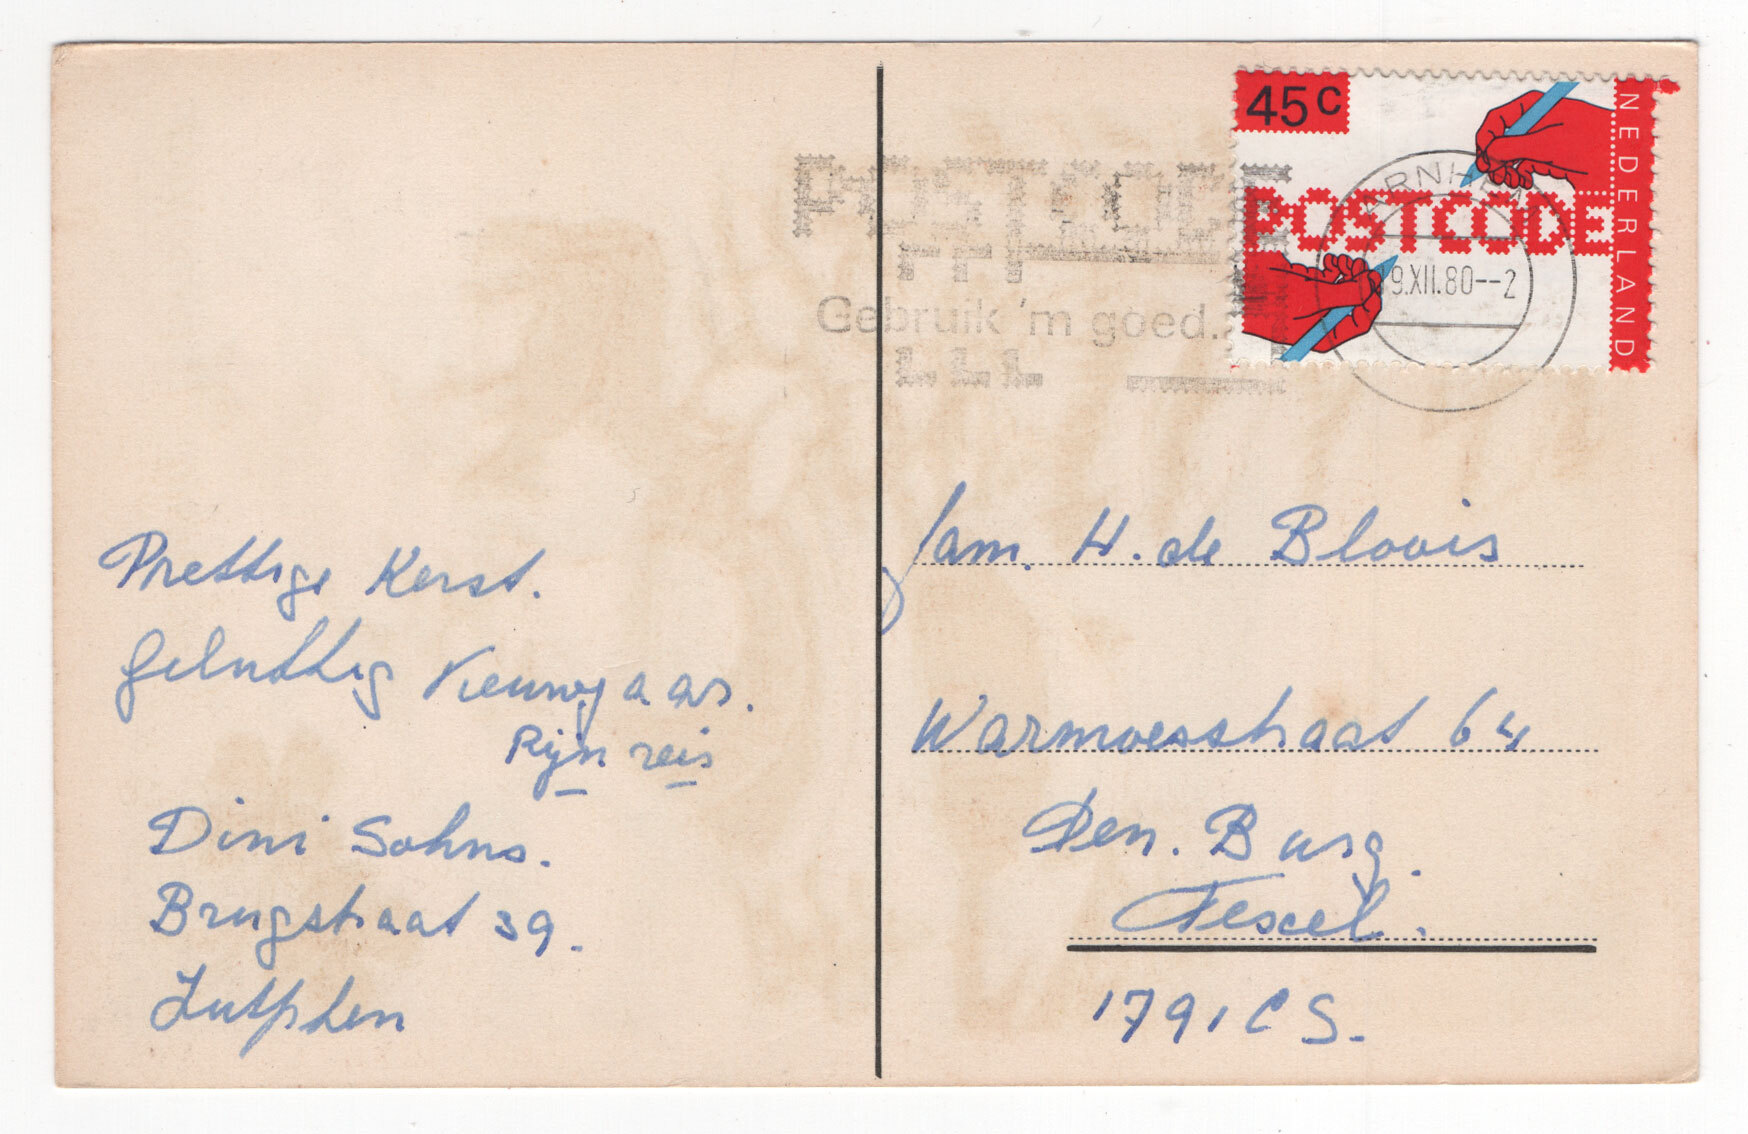 Prettige Kerst.
Gelukkig Nieuwjaar.
Rijn reis
Dini Sohns.
Brugstraat 39.
Zutphen
45c
NEDERLAND
POSTCODE
ARNHEM
19.XII.80--2
POSTCODE
Gebruik 'm goed.
fam. H. de Bloois
Warmoesstraat 64
Den. Burg.
Texel.
1791 CS.